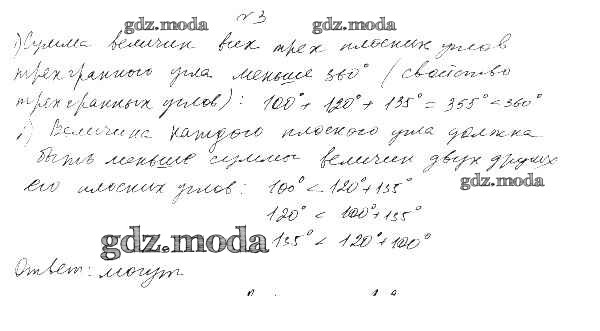 №3
gdz.moda gdz.moda
1) Сумма величин всех трех плоских углов
трехгранного угла меньше 360° (свойство
трехгранных углов): 100° + 120° + 135° = 355° < 360°
2) Величина каждого плоского угла должна
быть меньше суммы величин двух других
его плоских углов: 100° < 120° + 135°
gdz.moda
120° < 100° + 135°
gdz.moda 135° < 120° + 100°
Ответ: могут